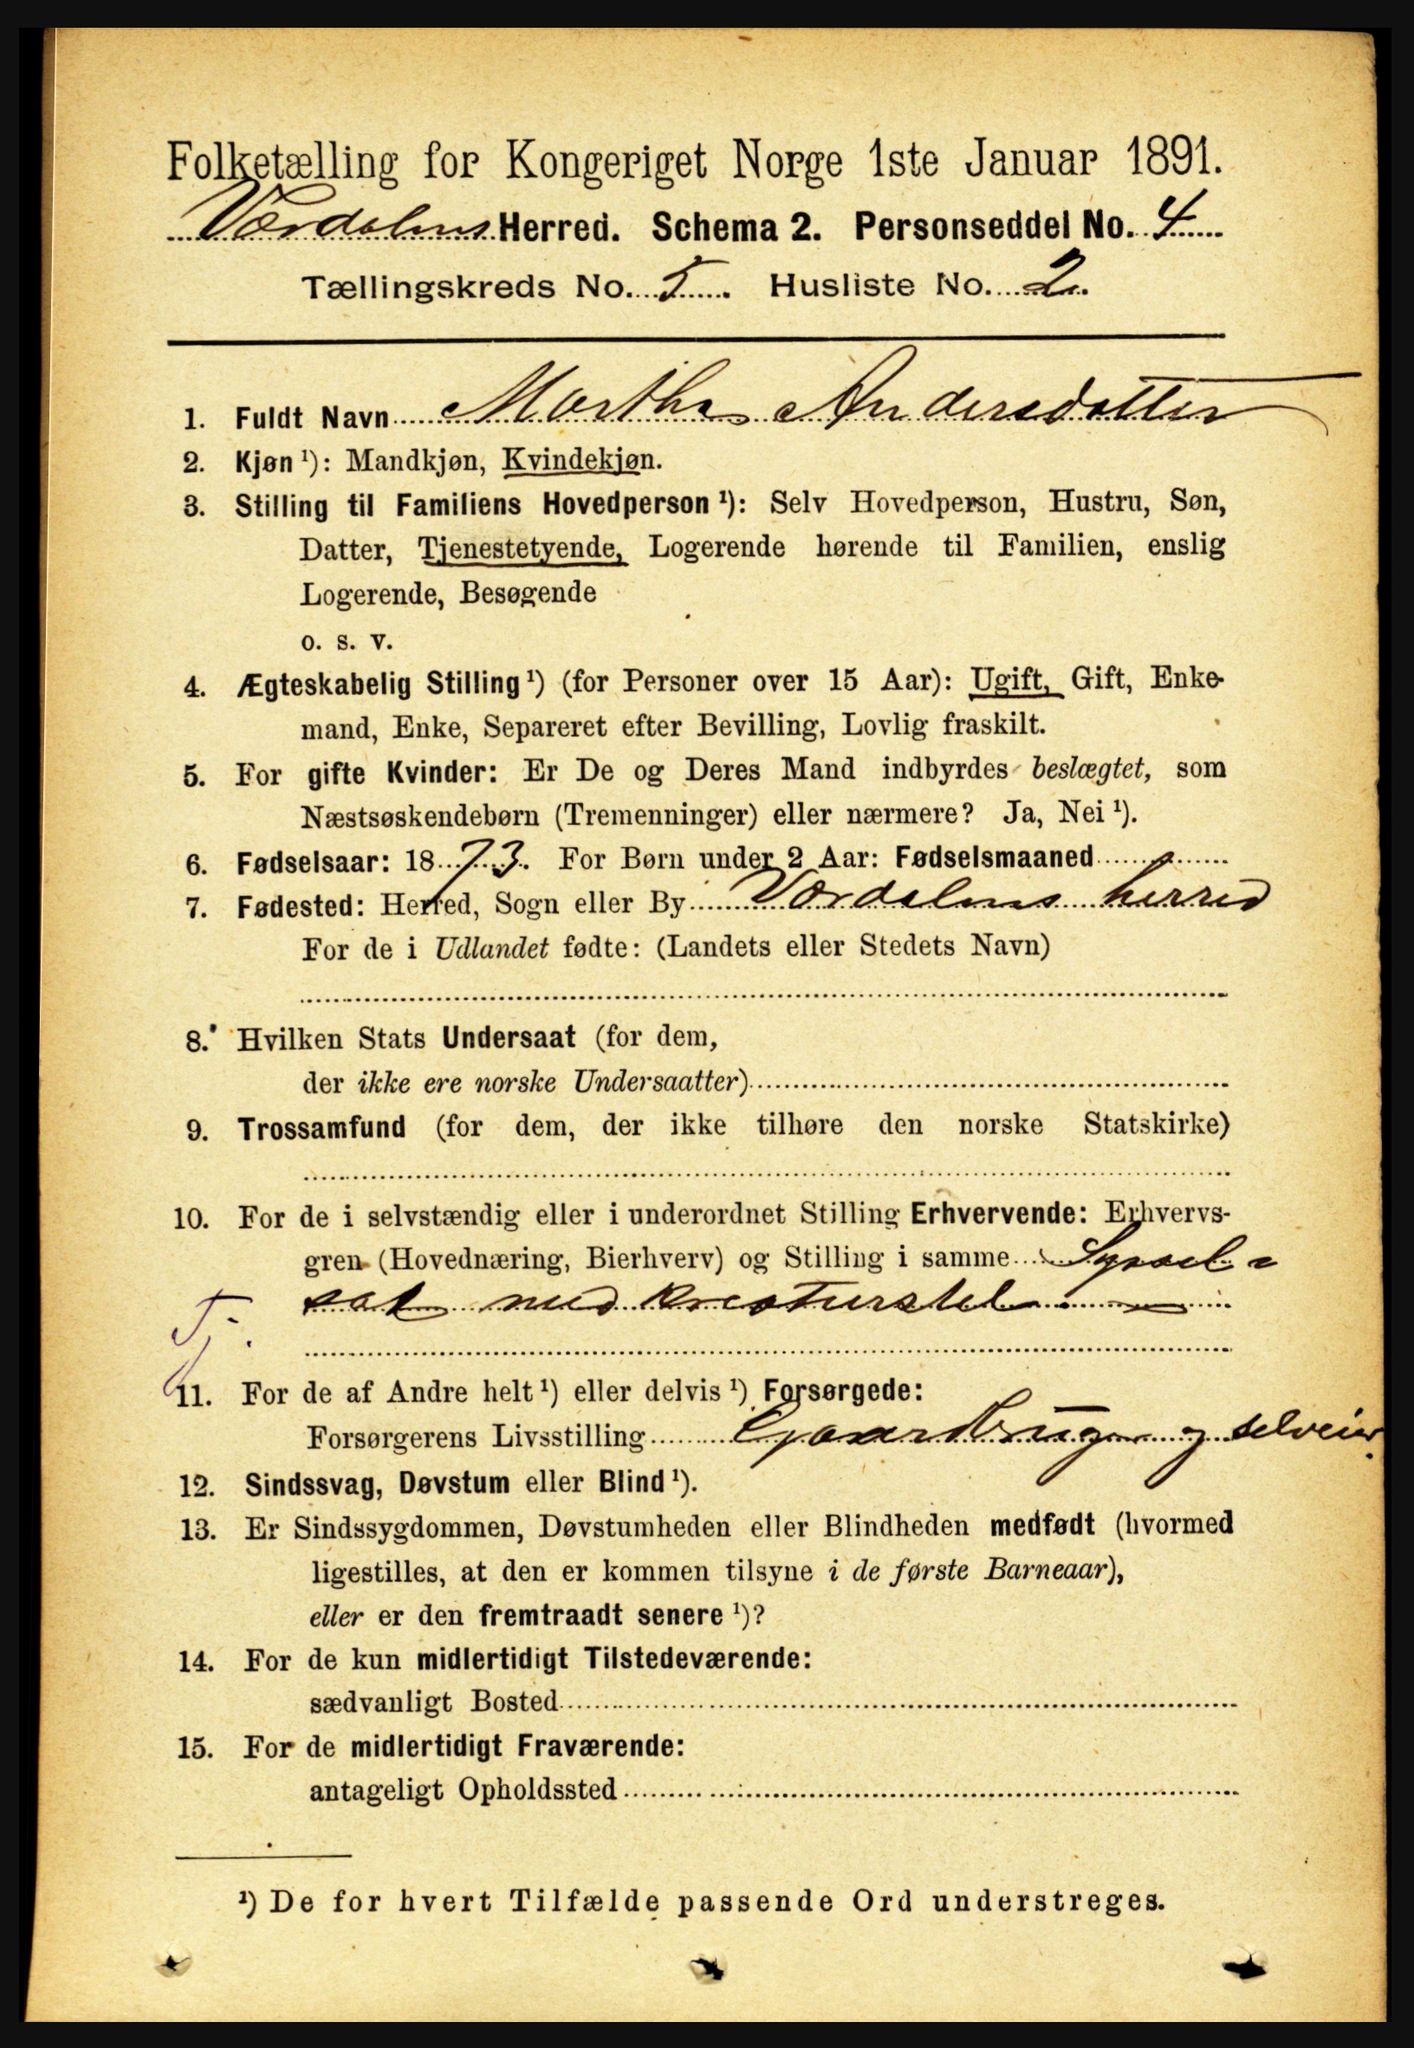 Folketælling for Kongeriget Norge 1ste Januar 1891.
Værdalens Herred. Schema 2. Personseddel No. 4
Tællingskreds No. 5. Husliste No. 2.
1. Fuldt Navn Martha Andersdatter
2. Kjøn ¹): Mandkjøn, Kvindekjøn.
3. Stilling til Familiens Hovedperson ¹): Selv Hovedperson, Hustru, Søn,
Datter, Tjenestetyende, Logerende hørende til Familien, enslig
Logerende, Besøgende
o. s. v.
4. Ægteskabelig Stilling ¹) (for Personer over 15 Aar): Ugift, Gift, Enke-
mand, Enke, Separeret efter Bevilling, Lovlig fraskilt.
5. For gifte Kvinder: Er De og Deres Mand indbyrdes beslægtet, som
Næstsøskendebørn (Tremenninger) eller nærmere? Ja, Nei ¹).
6. Fødselsaar: 1873. For Børn under 2 Aar: Fødselsmaaned
7. Fødested: Herred, Sogn eller By Værdalens herred
For de i Udlandet fødte: (Landets eller Stedets Navn)
8. Hvilken Stats Undersaat (for dem,
der ikke ere norske Undersaatter)
9. Trossamfund (for dem, der ikke tilhøre den norske Statskirke)
10. For de i selvstændig eller i underordnet Stilling Erhvervende: Erhvervs-
gren (Hovednæring, Bierhverv) og Stilling i samme Syssel-
sat med kreaturstel
Tj.
11. For de af Andre helt ¹) eller delvis ¹) Forsørgede:
Forsørgerens Livsstilling Gaardbruger og selveier.
12. Sindssvag, Døvstum eller Blind ¹).
13. Er Sindssygdommen, Døvstumheden eller Blindheden medfødt (hvormed
ligestilles, at den er kommen tilsyne i de første Barneaar),
eller er den fremtraadt senere ¹)?
14. For de kun midlertidigt Tilstedeværende:
sædvanligt Bosted
15. For de midlertidigt Fraværende:
antageligt Opholdssted
¹) De for hvert Tilfælde passende Ord understreges.